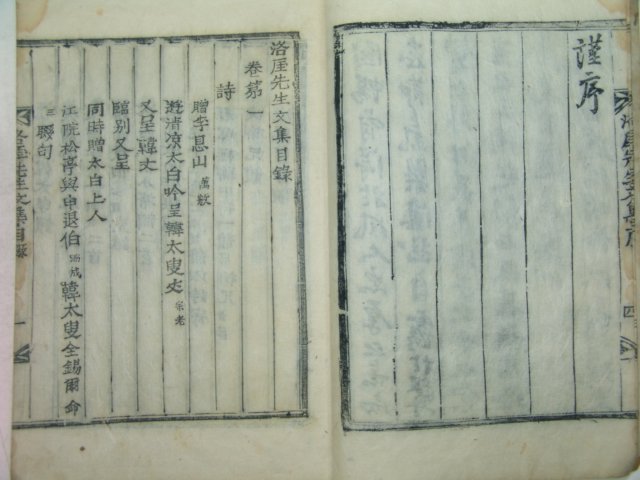 謹序
洛厓先生文集目錄
卷第一
詩
贈李息山 萬敷
遊清凉太白吟呈韓太叟丈
又呈韓丈
臨別又呈
同時贈太白上人
江院松亭與申退伯 韓太叟全錫爾命
聯句
洛厓先生文集目錄 一
洛厓先生文集序 四